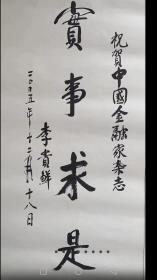 祝賀中國金融家杂志
實事求是
李貴鲜
二〇〇五年十二月十八日